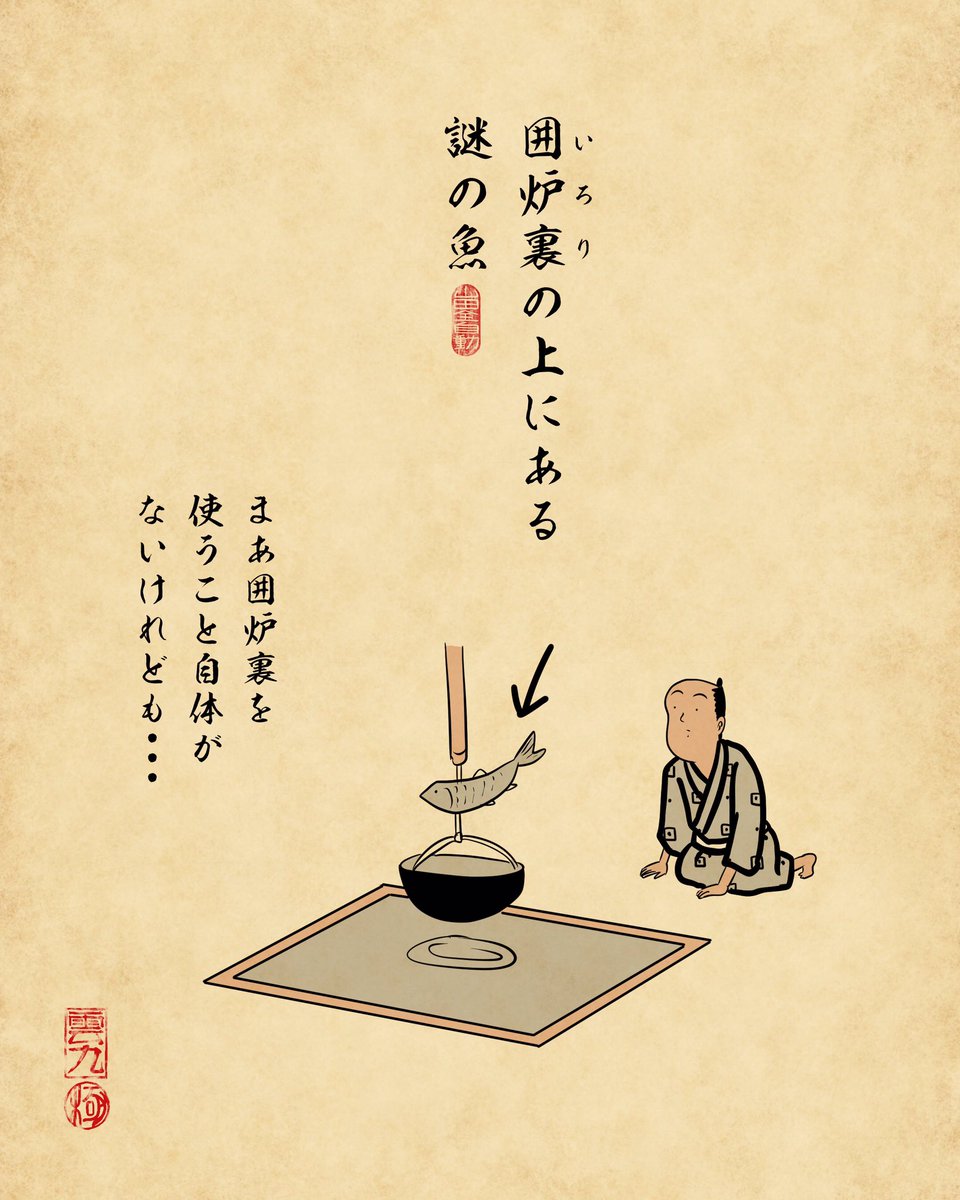 囲炉裏の上にある
いろり
謎の魚
まあ囲炉裏を
使うこと自体が
ないけれども・・・
雲九
極